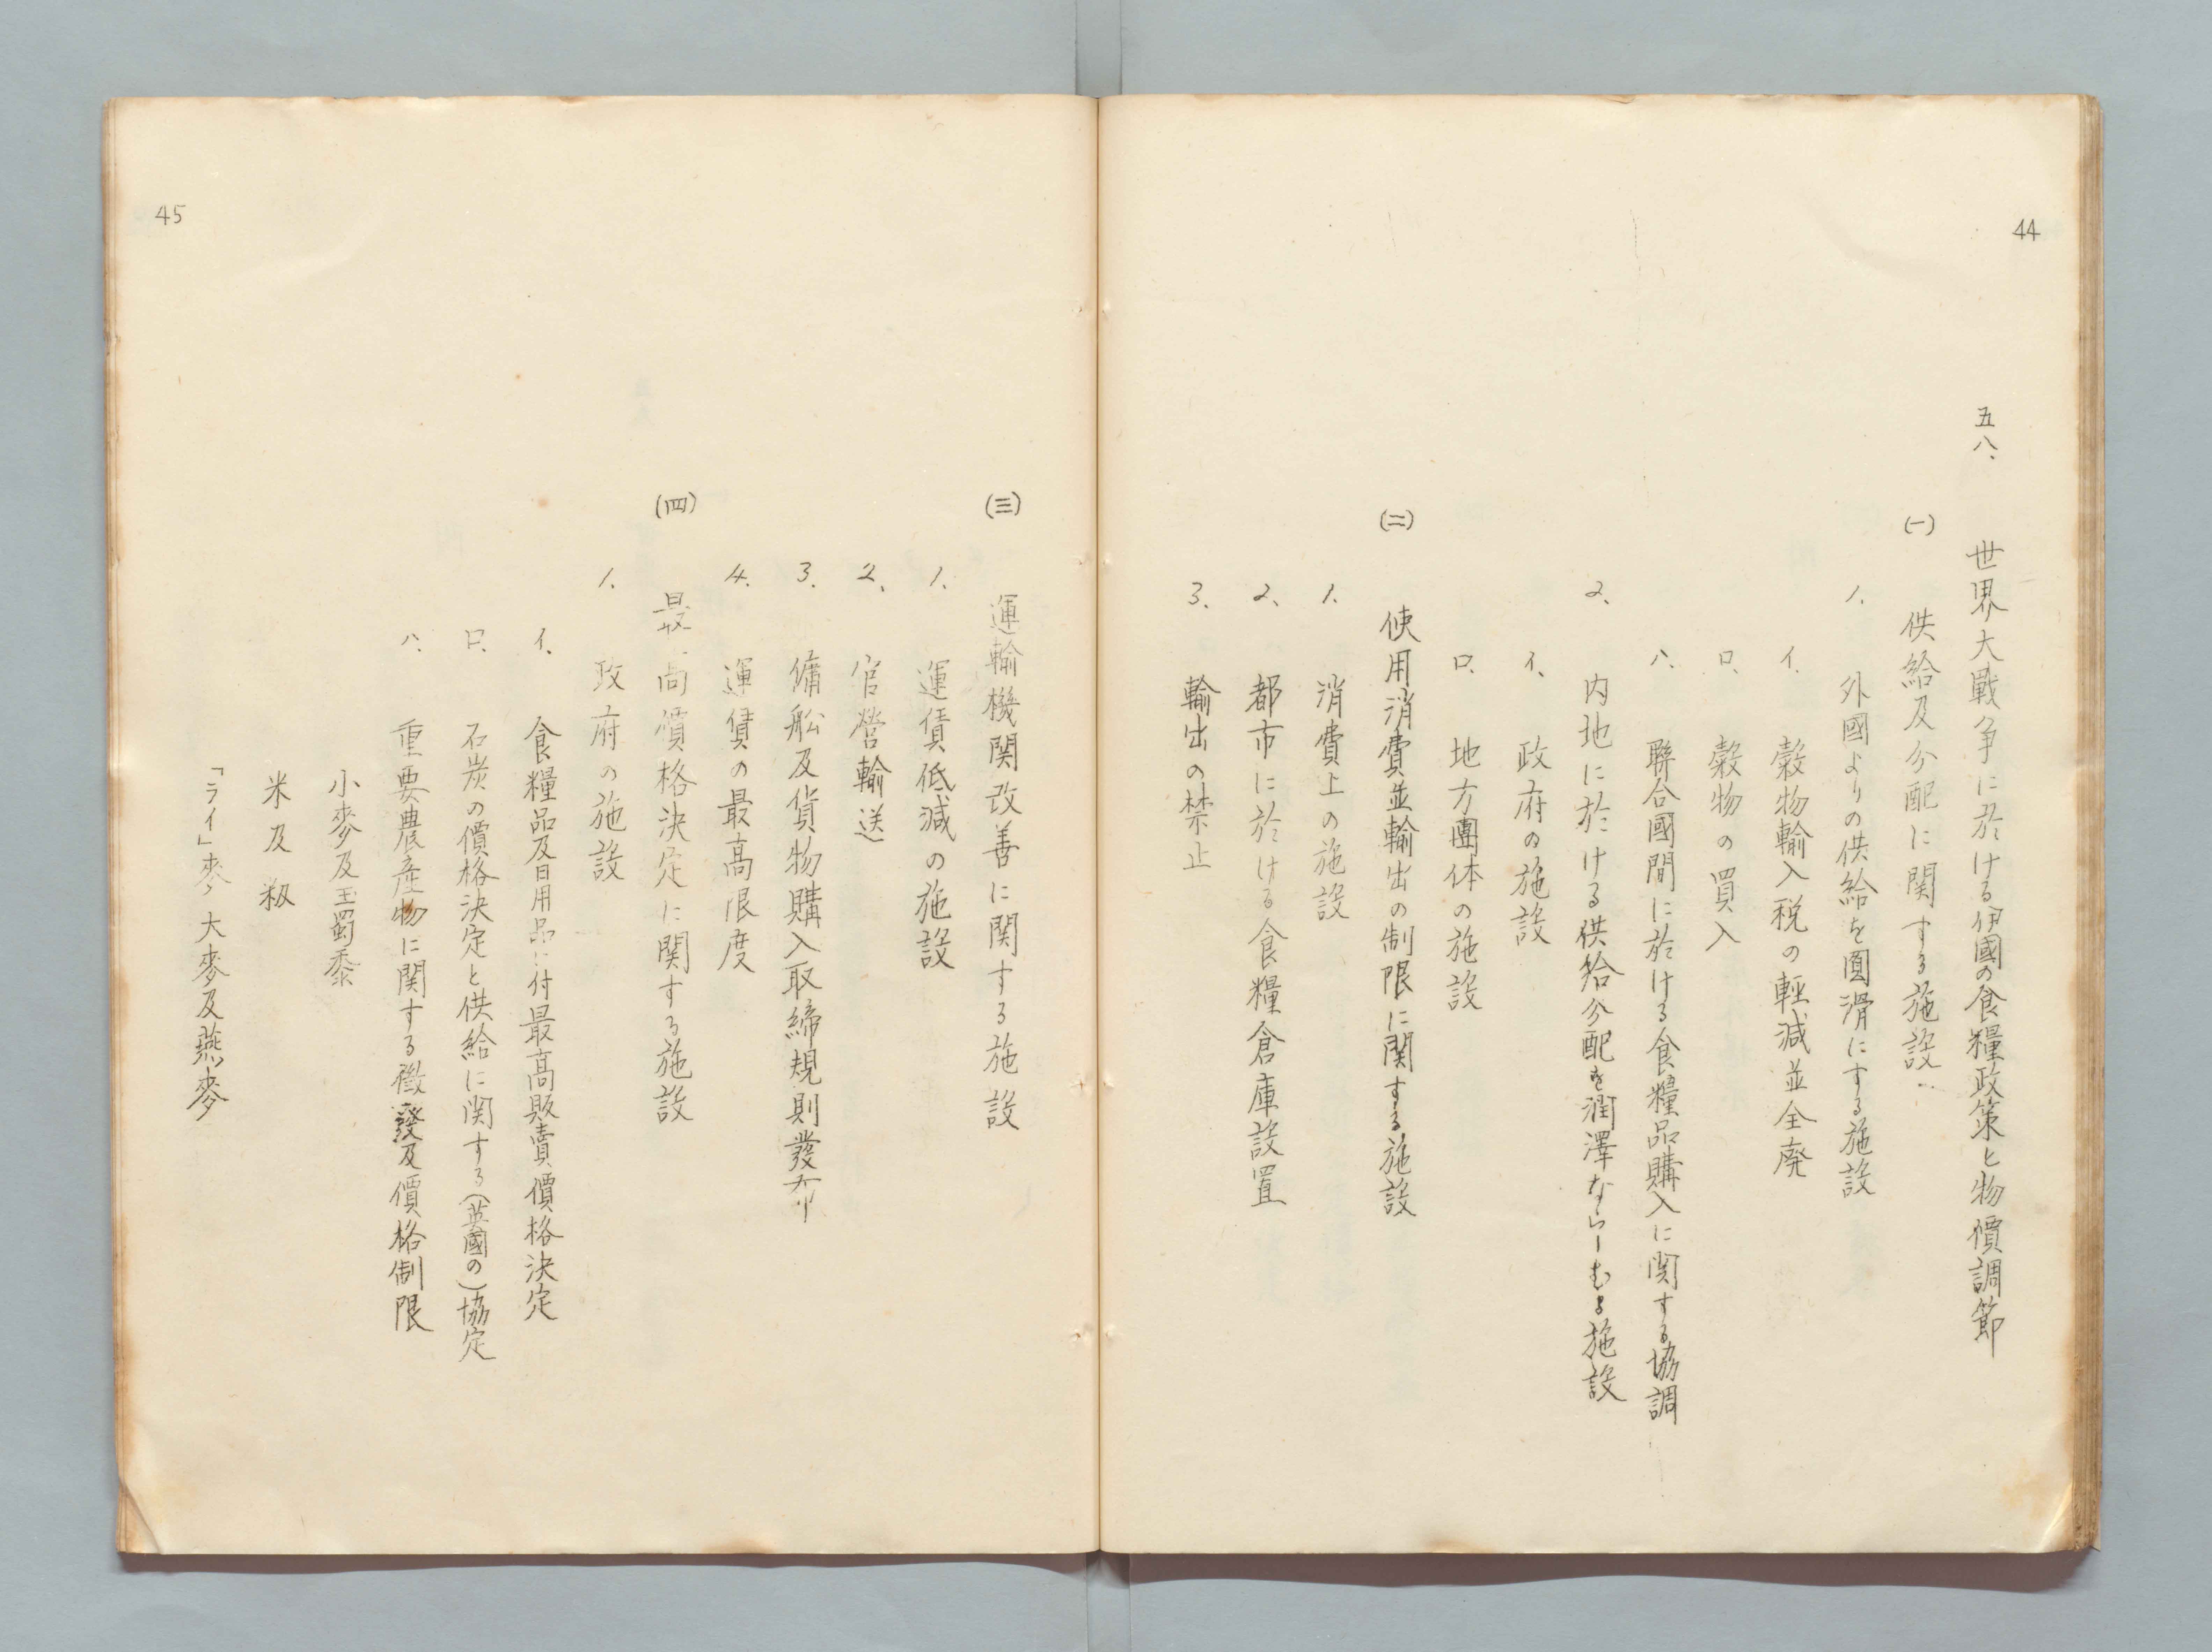 44
五八、 世界大戰争に於ける伊國の食糧政策と物價調節
(一) 供給及分配に関する施設
1. 外國よりの供給を圓滑にする施設
イ. 穀物輸入税の輕減並全廃
ロ. 穀物の買入
ハ. 聯合國間に於ける食糧品購入に関する協調
2. 内地に於ける供給分配を潤澤ならしむる施設
イ. 政府の施設
ロ. 地方團体の施設
(二) 使用消費並輸出の制限に関する施設
1. 消費上の施設
2. 都市に於ける食糧倉庫設置
3. 輸出の禁止
45
(三) 運輸機関改善に関する施設
1. 運賃低減の施設
2. 官營輸送
3. 傭舩及貨物購入取締規則發布
4. 運賃の最高限度
(四) 最高價格決定に関する施設
1. 政府の施設
イ. 食糧品及日用品に付最高販賣價格決定
ロ. 石炭の價格決定と供給に関する(英國の)協定
ハ. 重要農産物に関する徴發及價格制限
小麥及玉蜀黍
米及籾
「ライ」麥大麥及燕麥